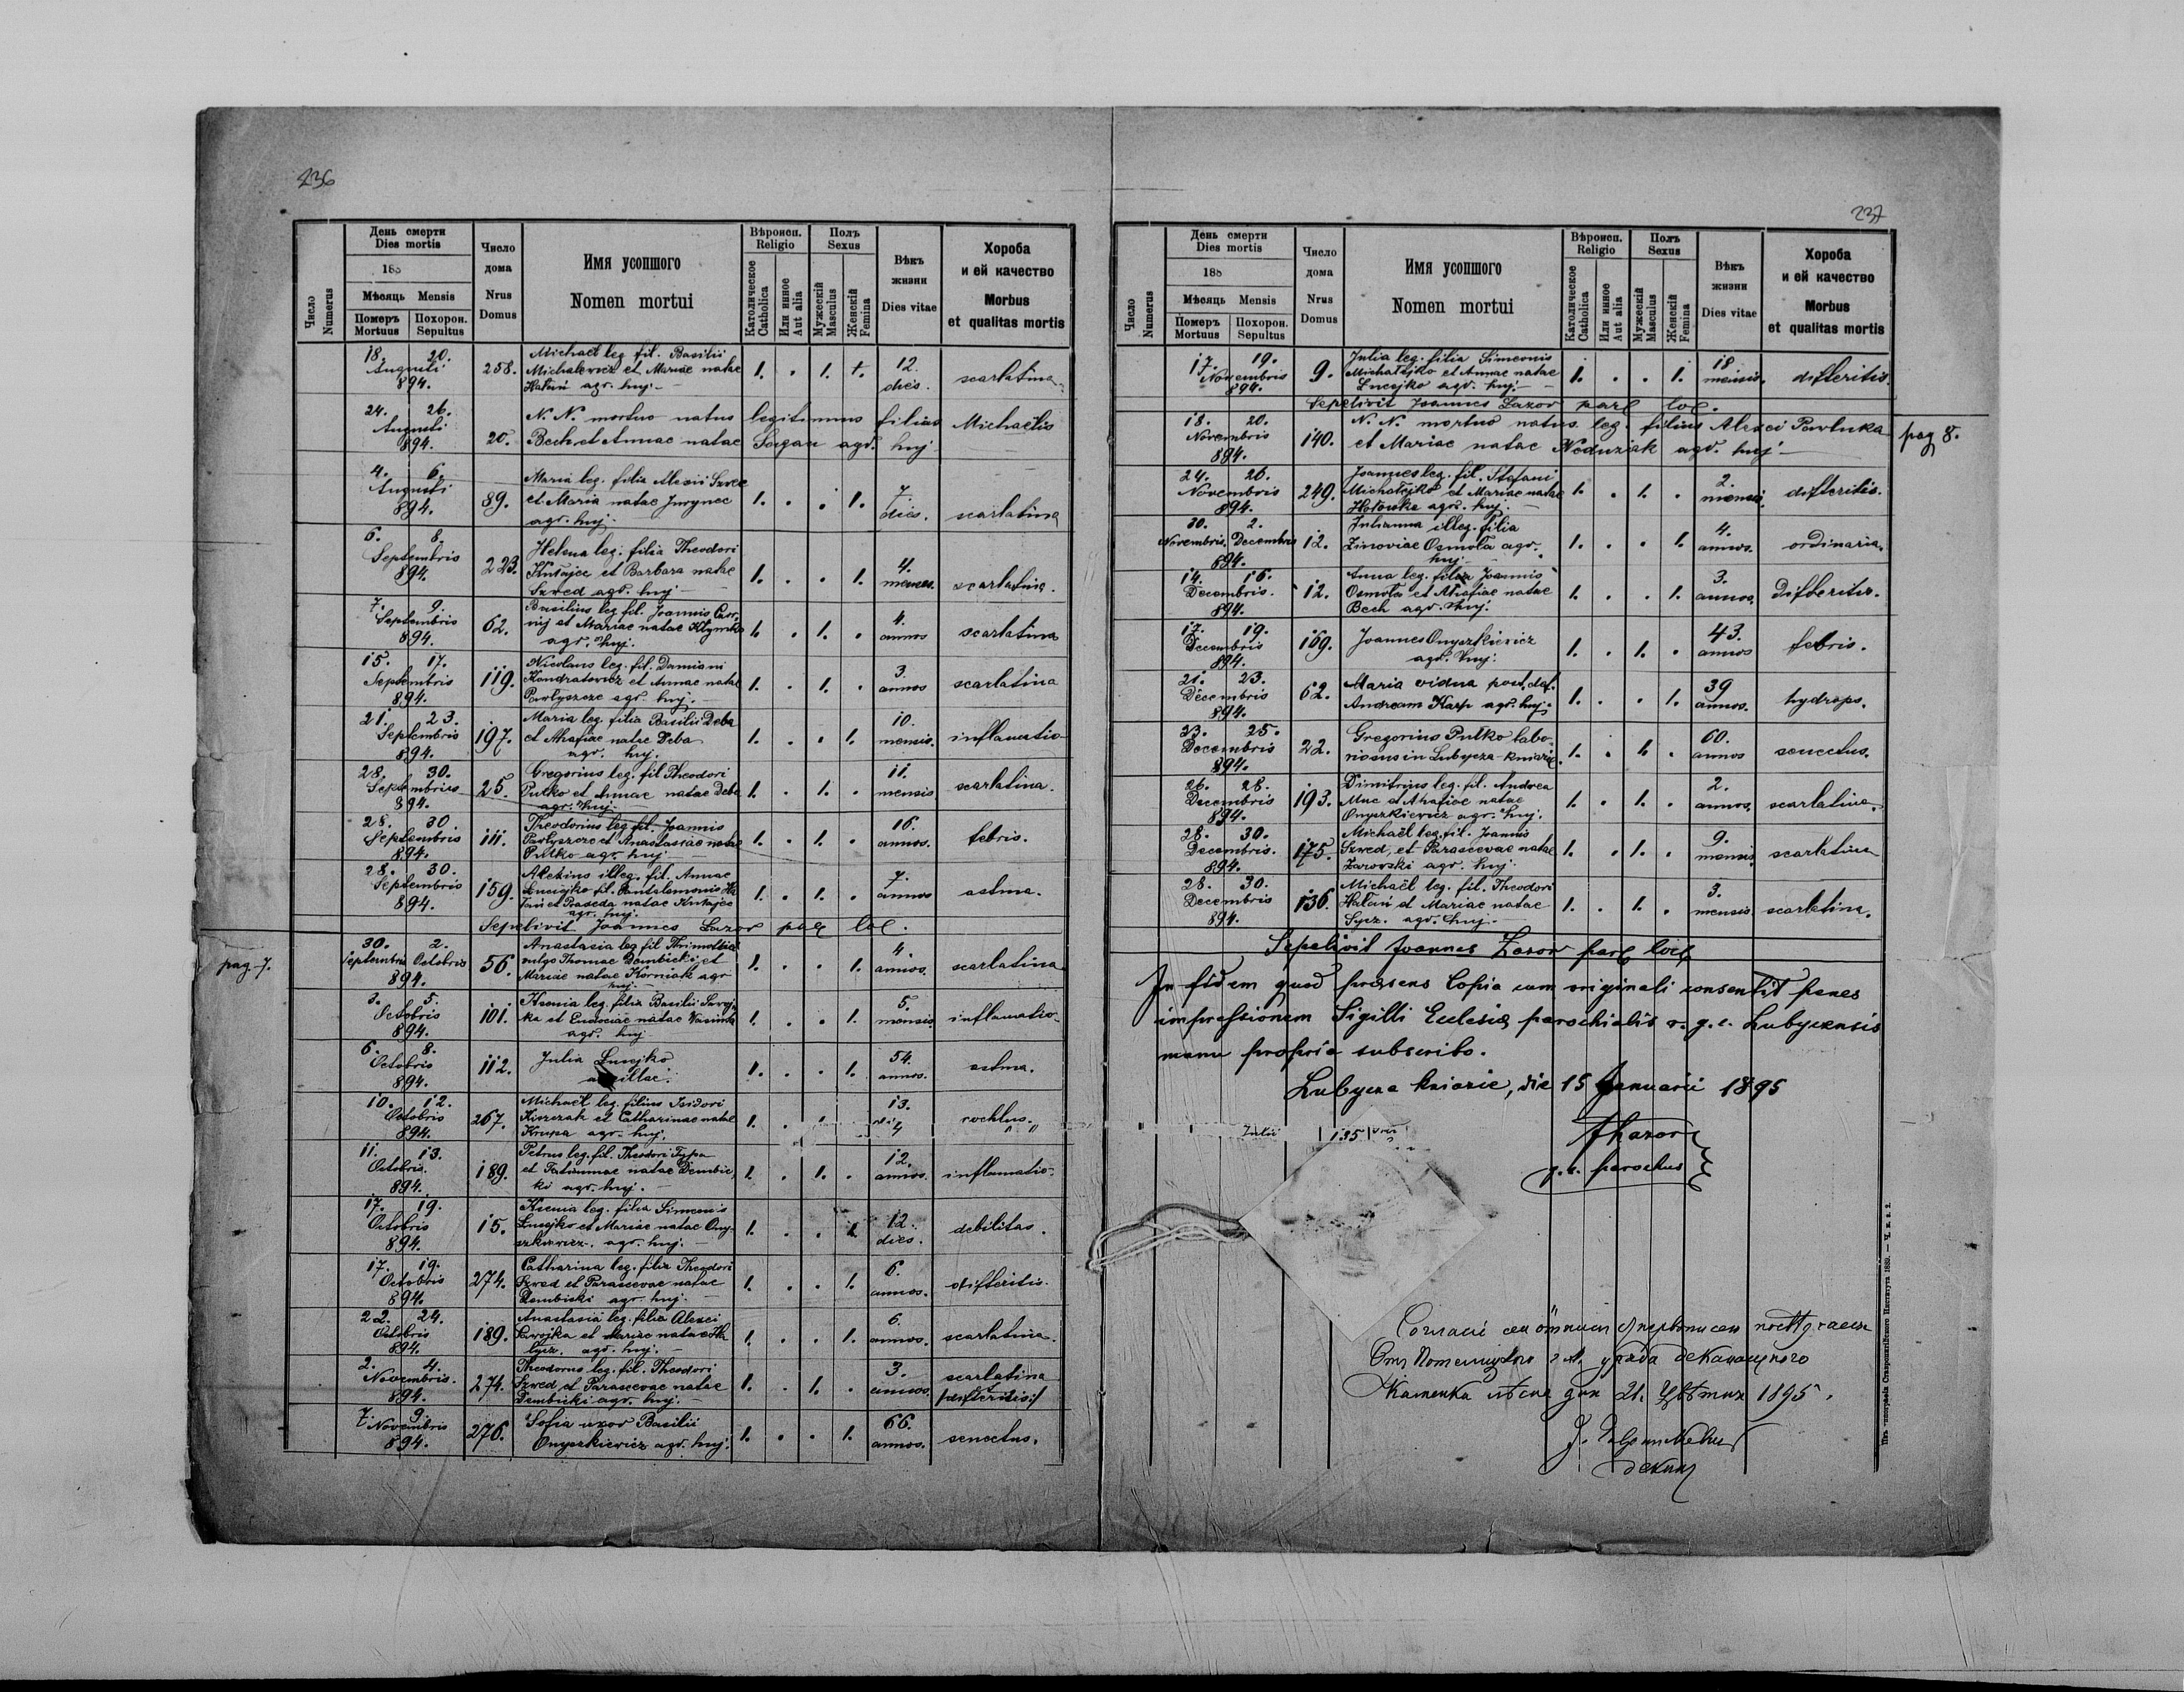 236
День смерти
Dies mortis
188
Мѣсяць Mensis
Померъ Mortuus
Похорон. Sepultus
Число Numerus
Число дома
Nrus Domus
Имя усопшого
Nomen mortui
Вѣроисп.
Religio
Католическое Catholica
Или инное Aut alia
Полъ
Sexus
Мужескій Masculus
Женскій Femina
Вѣкъ жизни
Dies vitae
Хороба и ей качество
Morbus et qualitas mortis
18. 20. Augusti 894. 258. Michael leg. fil. Basilii
Michalewicz et Mariae natae
Hałań agr. huj. 1. . 1. 12. dies. scarlatina
24. 26. Augusti 894. 20. N. N. mortuo natus legitimus filius Michaëlis
Bech et Annae natae agr. huj
4. 6. Augusti 894. 89. Maria leg. filia Alexii Szwec
et Maria natae Jurynec
agr. huj. 1. . . 1. 7 dies. scarlatina
6. 8. Septembris 894. 223. Helena leg. filia Theodori
Kułajec et Barbara natae
Szwed agr. huj 1. . . 1. 4. menses. scarlatina.
7. 9. Septembris 894. 62. Basilius leg. fil. Joannis
et Mariae natae Klymko
agr. huj. 1. . 1. . 4. annos scarlatina
15. 17. Septembris 894. 119. Nicolaus leg. fil. Damiani
Kondratowicz et Annae natae
Pawłyszcze agr. huj. 1. . 1. . 3. annos scarlatina
21. 23. Septembris 894. 197. Maria leg. filia Basilii Deba
et Ahafiae natae Deba
agr. huj. 1. . . 1. 10. mensis. inflamatio
28. 30. Septembris 894. 25. Gregorius leg. fil Theodori
Putko et Annae natae Deba
agr. huj. 1. . 1. . 11. mensis scarlatina.
28. 30 Septembris 894. 111. Theodorius leg. fil. Joannis
Pawłyszcze et Anastasiae natae
Putko agr. huj 1. . 1. . 16. annos. febris.
28. 30. Septembris 894. 159. Alexius illeg. fil. Annae
Łucejko fil. Pantalemonis Ha
łań et Praxeda natae Kułajec
agr. huj. 1. . 1. . 7. annos astma.
Sepelivit Joannes Lazor par loc.
pag. 7.
30. 2. Septembris Octobris 894. 56. Anastasia leg fil
vulgo Thomae Dembicki et
Mariae natae Korniak agr
huj. 1. . . 1. 4. annos. scarlatina
3. 5. Octobris 894. 101. Ksenia leg. filia Basilii
ka et Eudociae natae
agr. huj 1. . . 1. 5. mensis inflamatio
6. 8. Octobris 894. 112. Julia Łucejko
1. . . 1. 54. annos. astma.
10. 12. Octobris 894. 267. Michaël leg. filius Isidori
Kiszczak et Catharinae natae
Krupa agr. huj. 1. . 13.
11. 13. Octobris. 894. 189. Petrus leg. fil. Theodori
et Tatiannae natae Dembic
ki agr. huj. 1. . 1. . 12. annos. inflamatio
17. 19. Octobris 894. 15. Ksenia leg. filia Simeonis
Łucejko et Mariae natae Ony-
szkiewicz. agr. huj. 1. . . 1. 12. dies. debilitas.
17. 19. Octobris 894. 274. Catharina leg. filia Theodori
Szwed et Parascevae natae
Dembicki agr. huj. 1. . . 1. 6. annos. difteritis.
22. 24. Octobris 894. 189. Anastasia leg. filia Alexei
et Mariae natae
agr. huj. 1. . . 1. 6. annos. scarlatina.
2. 4. Novembris. 894. 274. Theodorus leg. fil. Theodori
Szwed et Parascevae natae
Dembicki agr. huj. 1. . 1. . 3. annos. scarlatina
7. 9 Novembris 894. 276. Sofia uxor Basilii
Onyszkiewicz agr. huj. 1. . . 1. 66. annos. senectus.
237
День смерти
Dies mortis
188
Мѣсяць Mensis
Померъ Mortuus
Похорон. Sepultus
Число Numerus
Число дома
Nrus Domus
Имя усопшого
Nomen mortui
Вѣроисп.
Religio
Католическое Catholica
Или инное Aut alia
Полъ
Sexus
Мужескій Masculus
Женскій Femina
Вѣкъ жизни
Dies vitae
Хороба и ей качество
Morbus et qualitas mortis
17. 19. Novembris 894. 9. Julia leg. filia Simeonis
Michałejko et Annae natae
Łucejko agr. huj. 1. . . 1. 18 mensis. difteritis.
Sepelivit Joannes Lazor par loc.
18. 20. Novembris 894. 140. N. N. mortuo natus leg. filius Alexei Pawluka
et Mariae natae Neduziak agr. huj
pag 8.
24. 26. Novembris 894. 249. Joannes leg. fil. Stefani
Michałejko et Mariae natae
Hołowka agr. huj. 1. . 1. . 2. mensis difteritis.
30. 2. Novembris. Decembris 894. 12. Julianna illeg. filia
Zinoviae Osmoła agr.
huj 1. . . 1. 4. annos. ordinaria.
14. 16. Decembris. 894. 12. Anna leg. filia Joannis
Osmoła et Ahafiae natae
Bech agr. huj. 1. . . 1. 3. annos. Difteritis.
17. 19. Decembris 894. 169. Joannes Onyszkiewicz
agr. huj. 1. . 1. . 43. annos febris.
21. 23. Decembris 894. 62. Maria vidua post def.
Andream Karp agr. huj. 1. . . 1. 39 annos. hydrops.
23. 25. Decembris 894. 22. Gregorius Putko labo-
riosus in Lubycza-kniazie. 1. . 1. . 60. annos senectus.
26. 28. Decembris 894. 193. Dimitrius leg. fil. Andrea
Muc et Ahafiae natae
Onyszkiewicz agr. huj. 1. . 1. . 2. annos. scarlatina.
28. 30. Decembris. 894. 175. Michaël leg. fil. Joannis
Szwed, et Parascevae natae
Zarowski agr. huj. 1. . 1. . 9. mensis scarlatina
28. 30. Decembris 894. 136. Michaël leg. fil. Theodori
Hałań et Mariae natae
Sycz. agr. huj. 1. . 1. . 3. mensis. scarlatina.
Sepelivit Joannes Lazor par loci
In fidem quod praesens Copia cum originali consentit penes
impressionem Sigilli Ecclesiae parochialis r. g. c. Lubyczensis
manu propria subscribo.
Lubycza kniazie, die 15 Januarii 1895
JLazor
parochus
Julii 135
Отъ уряда деканального
Каменка лѣсна дня 21. 1895.
декан
Изъ типографіи Ставропигійского Института 1882. — Ч. п. в. 2.